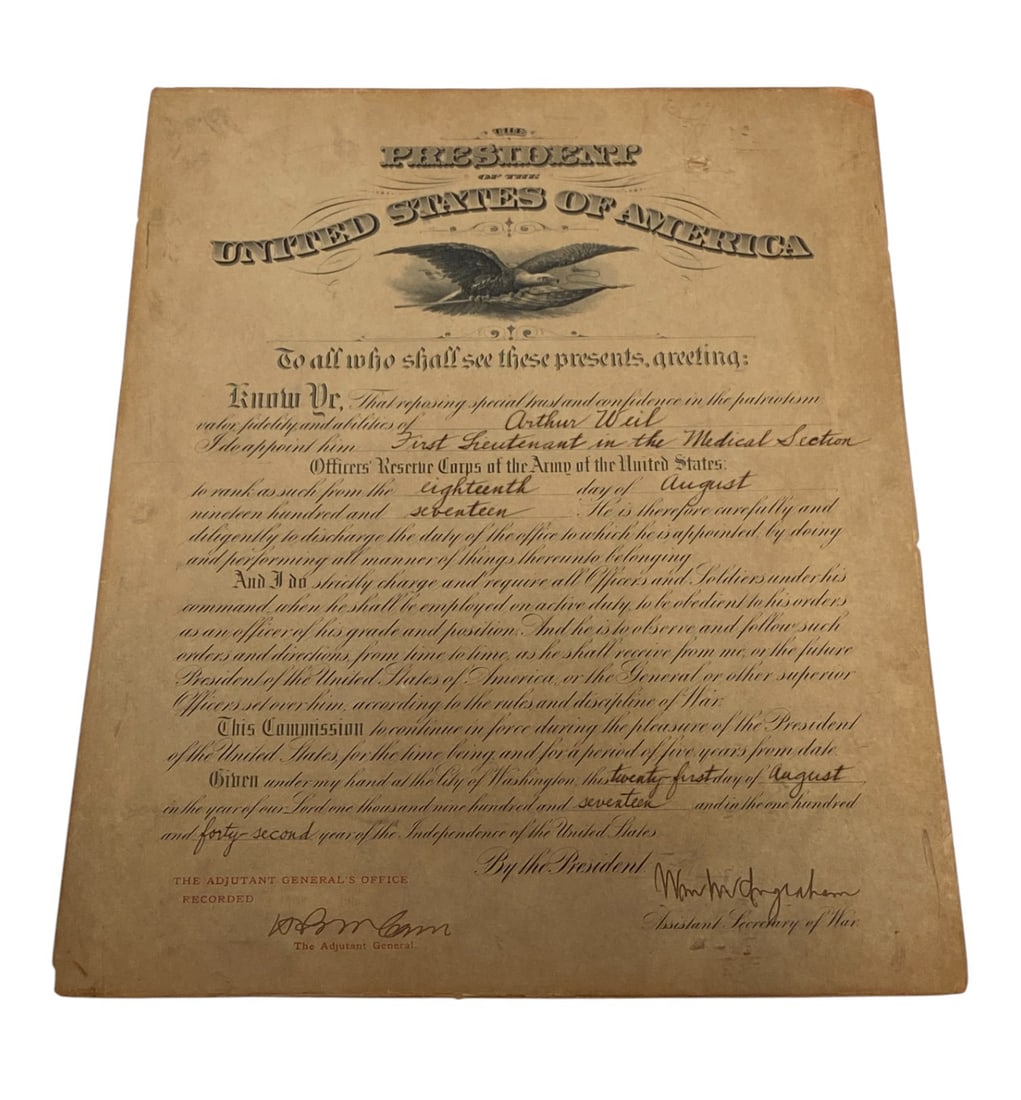 THE
PRESIDENT
OF THE
UNITED STATES OF AMERICA
To all who shall see these presents, greeting:
Know Ye, That reposing special trust and confidence in the patriotism
valor, fidelity and abilities of Arthur Weil
I do appoint him First Lieutenant in the Medical Section
Officers' Reserve Corps of the Army of the United States:
to rank as such from the eighteenth day of August
nineteen hundred and seventeen He is therefore carefully and
diligently to discharge the duty of the office to which he is appointed, by doing
and performing all manner of things thereunto belonging.
And I do strictly charge and require all Officers and Soldiers under his
command, when he shall be employed on active duty, to be obedient to his orders
as an officer of his grade and position. And he is to observe and follow such
orders and directions, from time to time, as he shall receive from me, or the future
President of the United States of America, or the General or other superior
Officers set over him, according to the rules and discipline of War.
This Commission to continue in force during the pleasure of the President
of the United States, for the time being, and for a period of five years from date.
Given under my hand at the City of Washington, this twenty-first day of August
in the year of our Lord one thousand nine hundred and seventeen and in the one hundred
and forty-second year of the Independence of the United States.
By the President
THE ADJUTANT GENERAL'S OFFICE
RECORDED
Wm M Ingraham
Assistant Secretary of War.
The Adjutant General.